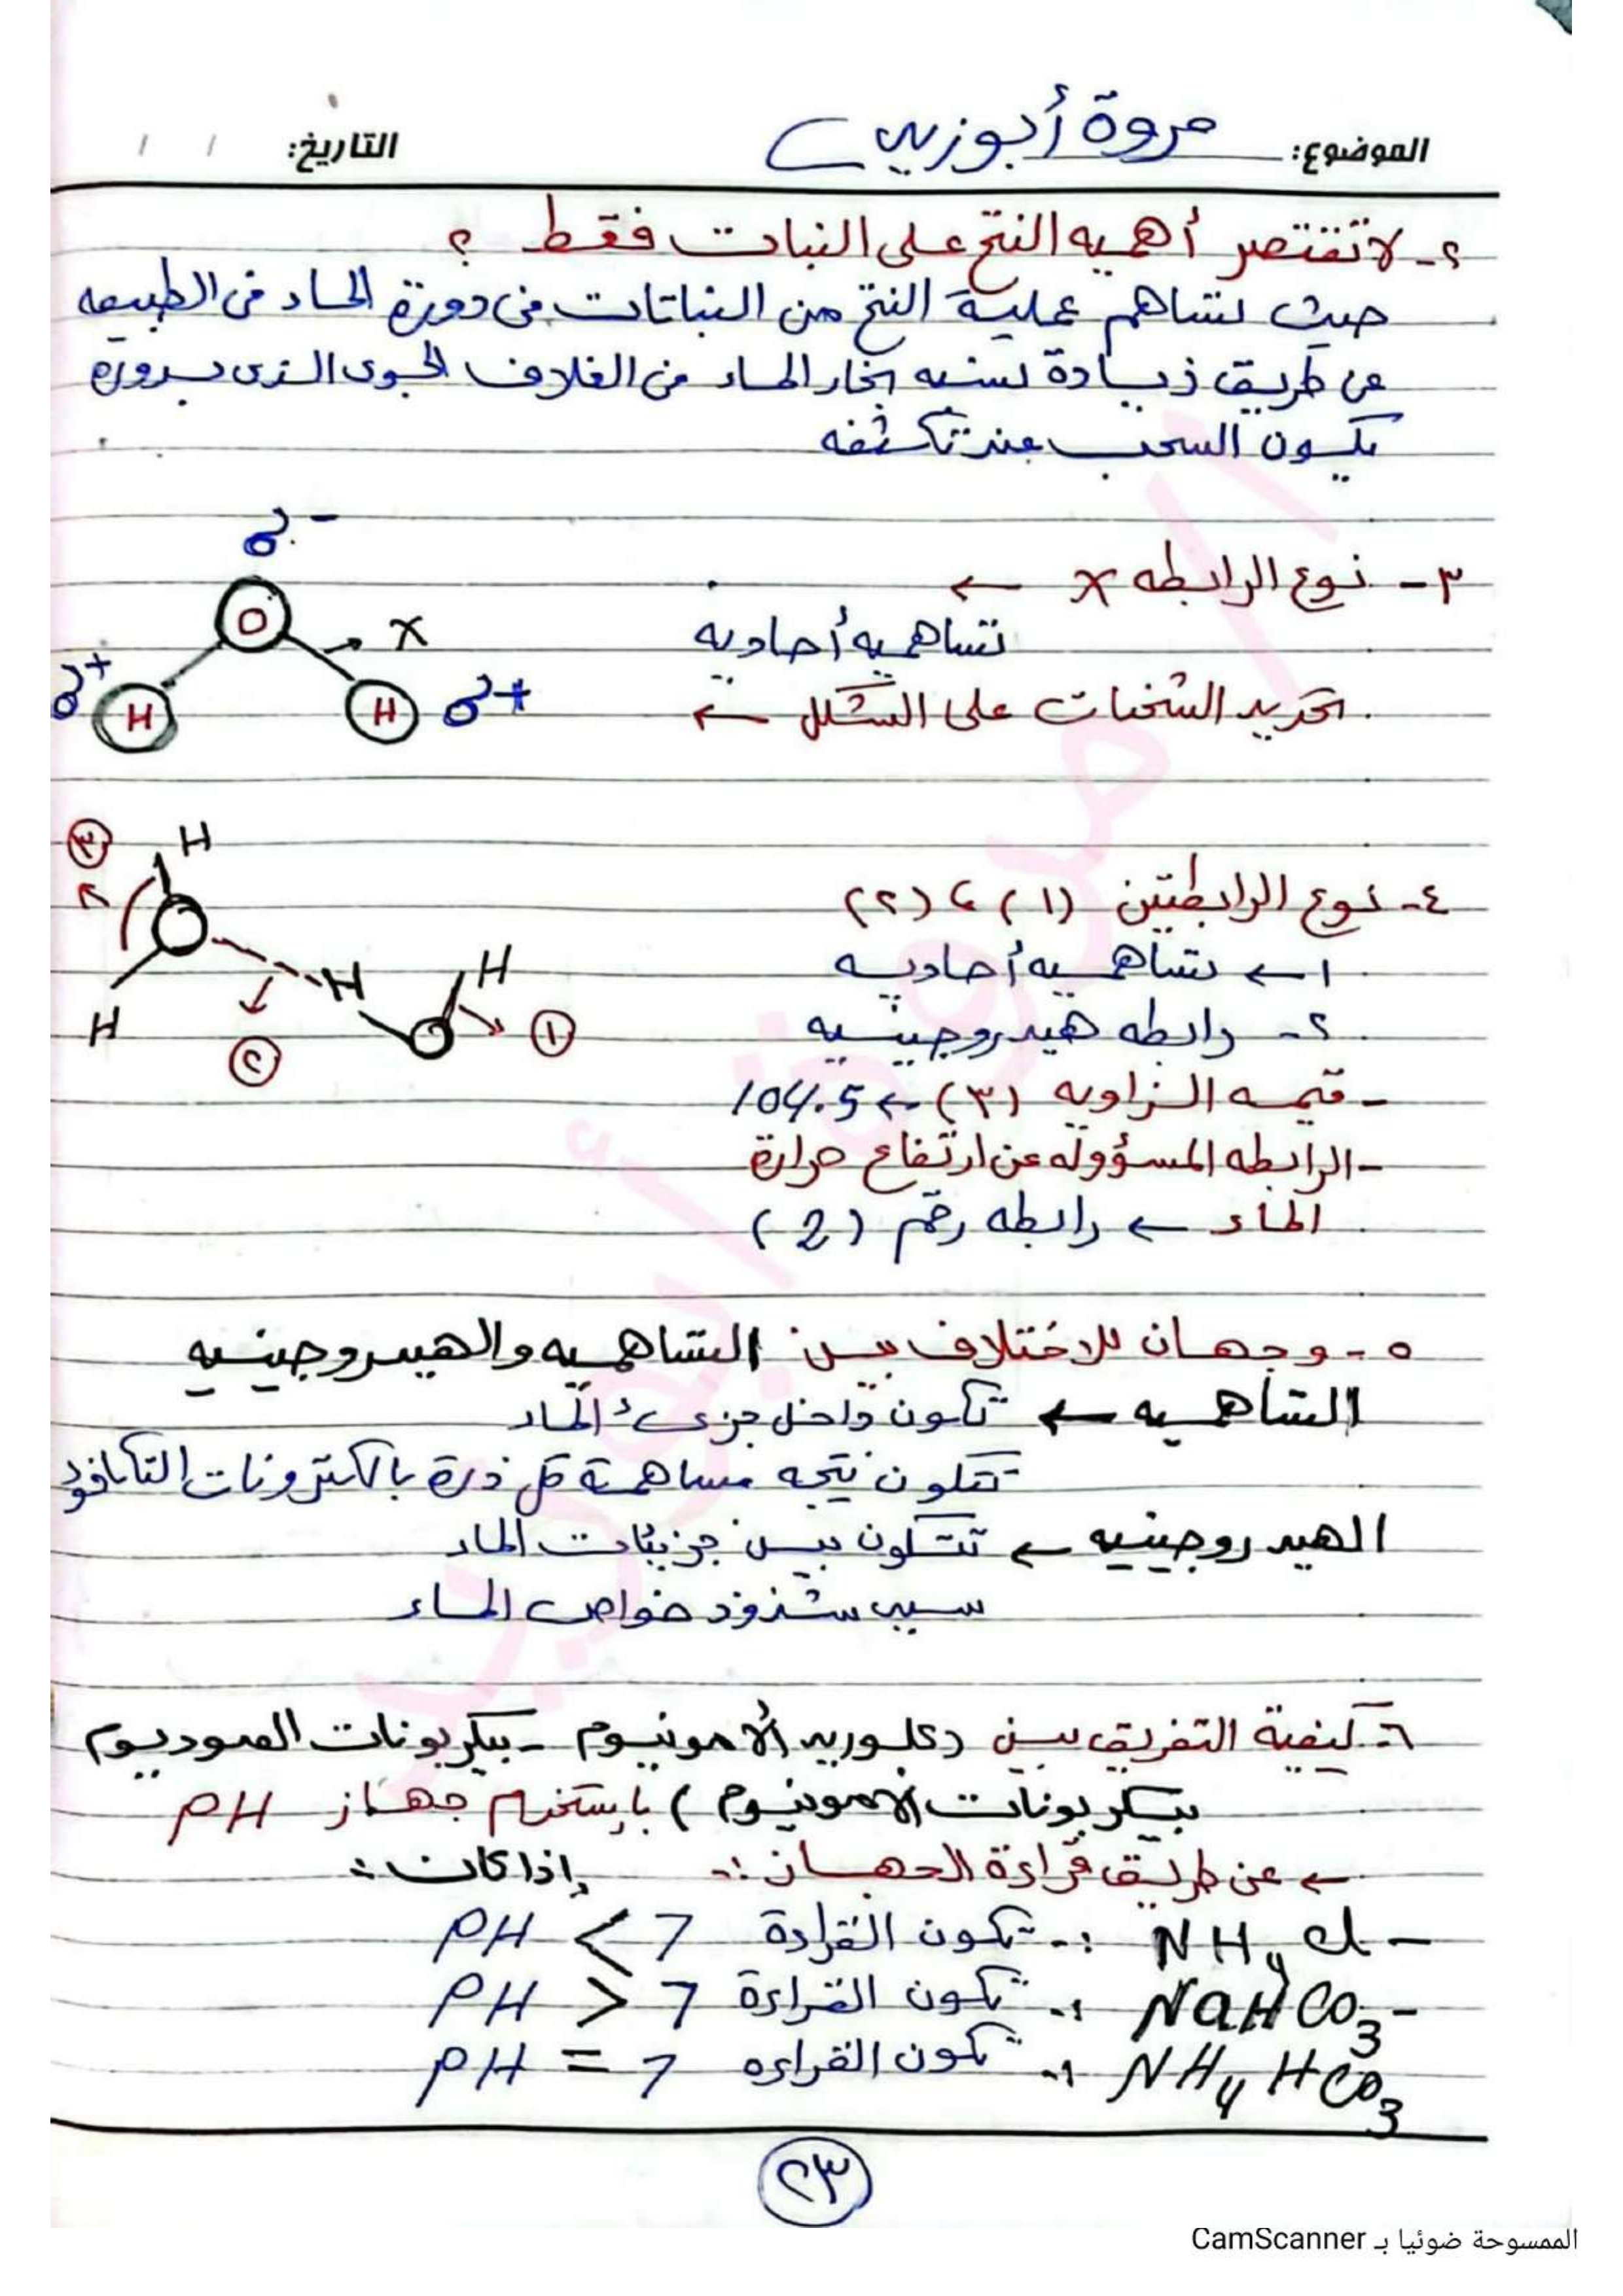 الموضوع: مروة أبوزيد
التاريخ: / /
٢- لا تقتصر أهميه النتح على النبات فقط ؟
حيث تساهم عملية النتح من النباتات فى دورة الماء فى الطبيعه
عن طريق زيادة نسبه بخار الماء فى الغلاف الجوى الذى بدوره
يكون السحب عند تكثفه
٣- نوع الرابطه X ←
تساهميه أحاديه
تحديد الشحنات على الشكل ←
δ-
O
X
δ+ H
H δ+
٤- نوع الرابطتين (١) ، (٢)
١ ← تساهميه أحاديه
٢- رابطه هيدروجينيه
- قيمه الزاويه (٣) ← 104.5
- الرابطه المسؤوله عن ارتفاع حرارة
الماء ← رابطه رقم (2)
٣ H
H H
H
٢ ١
٥- وجهان للاختلاف بين التساهميه والهيدروجينيه
التساهميه ← تكون داخل جزىء الماء
تتكون نتيجه مساهمة كل ذرة بالكترونات التكافؤ
الهيدروجينيه ← تتكون بين جزيئات الماء
سبب شذوذ خواص الماء
٦- كيفية التفريق بين (كلوريد الأمونيوم - بيكربونات الصوديوم
بيكربونات الامونيوم) بإستخدام جهاز PH
← عن طريق قراءة الجهاز :- إذا كان :
- NH4Cl :- تكون القراءة PH < 7
- NaHCO3 :- تكون القراءة PH > 7
NH4HCO3 :- تكون القراءه PH = 7
٢٣
الممسوحة ضوئيا بـ CamScanner